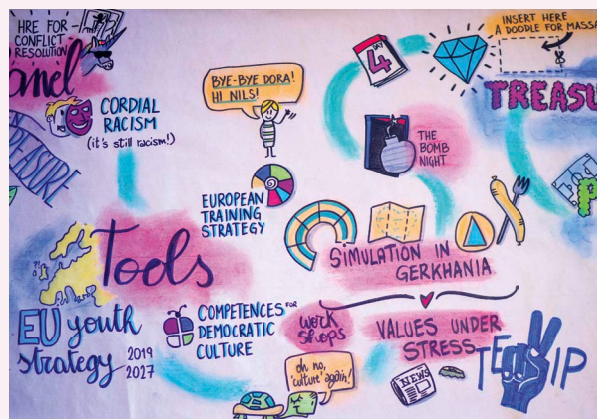 HRE FOR
CONFLICT
RESOLUTION
anel
CORDIAL
RACISM
(it's still racism!)
BYE-BYE DORA!
HI NILS!
DAY
4
INSERT HERE
A DOODLE FOR MASSA
TREASU
THE
BOMB
NIGHT
EUROPEAN
TRAINING
STRATEGY
Tools
SIMULATION IN
GERKHANIA
EU youth
strategy
2019
2027
COMPETENCES FOR
DEMOCRATIC
CULTURE
work
shops
VALUES UNDER
STRESS
oh no,
'culture' again!
NEWS